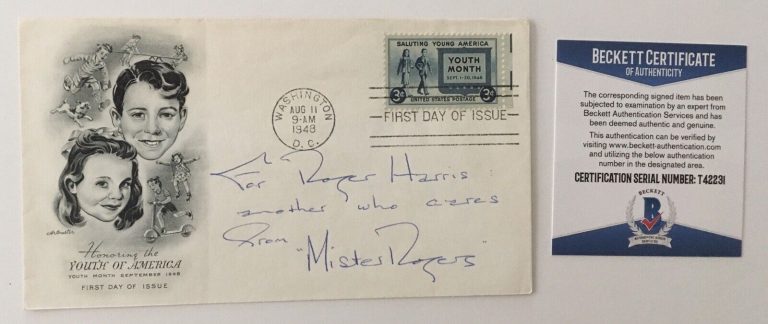 SALUTING YOUNG AMERICA
YOUTH
MONTH
SEPT. 1-30, 1948
3¢ 3¢
UNITED STATES POSTAGE
WASHINGTON
AUG 11
9-AM
1948
D. C.
FIRST DAY OF ISSUE
For Roger Harris
another who cares
from
"Mister Rogers"
Honoring the
YOUTH OF AMERICA
YOUTH MONTH SEPTEMBER 1948
FIRST DAY OF ISSUE
BECKETT CERTIFICATE
OF AUTHENTICITY
The corresponding signed item has been
subjected to examination by an expert from
Beckett Authentication Services and has
been deemed authentic and genuine.
This authentication can be verified by
visiting www.beckett-authentication.com
and utilizing the below authentication
number in the designated area.
CERTIFICATION SERIAL NUMBER: T42231
BECKETT
B